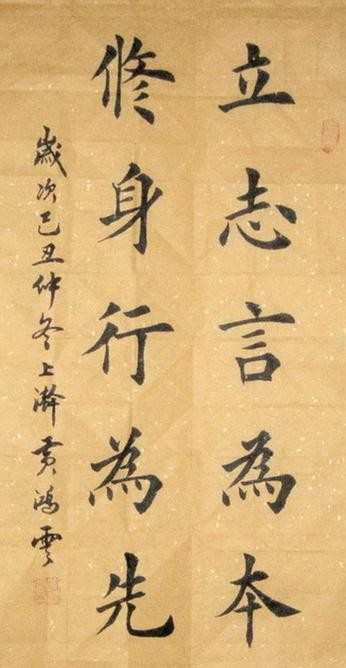 立志言為本
修身行為先
歲次己丑仲冬上澣黃鴻雲